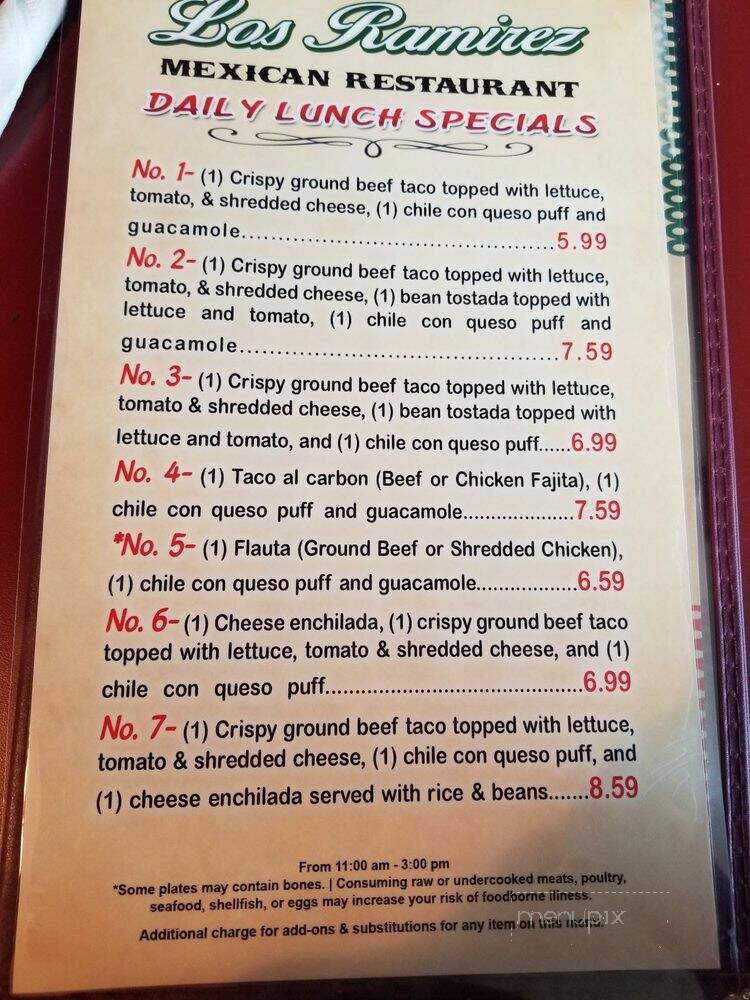 Los Ramirez
MEXICAN RESTAURANT
DAILY LUNCH SPECIALS
No. 1- (1) Crispy ground beef taco topped with lettuce,
tomato, & shredded cheese, (1) chile con queso puff and
guacamole..................................................5.99
No. 2- (1) Crispy ground beef taco topped with lettuce,
tomato, & shredded cheese, (1) bean tostada topped with
lettuce and tomato, (1) chile con queso puff and
guacamole..................................................7.59
No. 3- (1) Crispy ground beef taco topped with lettuce,
tomato & shredded cheese, (1) bean tostada topped with
lettuce and tomato, and (1) chile con queso puff......6.99
No. 4- (1) Taco al carbon (Beef or Chicken Fajita), (1)
chile con queso puff and guacamole....................7.59
*No. 5- (1) Flauta (Ground Beef or Shredded Chicken),
(1) chile con queso puff and guacamole..................6.59
No. 6- (1) Cheese enchilada, (1) crispy ground beef taco
topped with lettuce, tomato & shredded cheese, and (1)
chile con queso puff...........................................6.99
No. 7- (1) Crispy ground beef taco topped with lettuce,
tomato & shredded cheese, (1) chile con queso puff, and
(1) cheese enchilada served with rice & beans.......8.59
From 11:00 am - 3:00 pm
*Some plates may contain bones. | Consuming raw or undercooked meats, poultry,
seafood, shellfish, or eggs may increase your risk of foodborne illness.
Additional charge for add-ons & substitutions for any item on this menu.
menupix